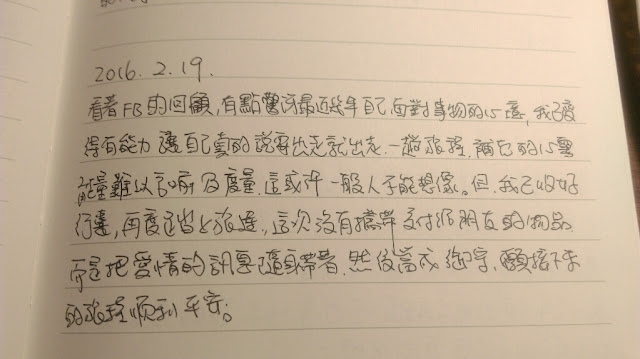 2016. 2. 19.
看著FB的回顧,有點驚訝最近幾年自己面對事物的心境,我已變
得有能力讓自己真的說要出走就出走.一趟旅程,補它的心靈
能量難以言喻及度量.這或許一般人不能想像。但,我已收好
行囊,再度踏上旅途,這次沒有攜帶交付給朋友的物品
而是把愛情的訊息隨身帶著.然後當成御守,願接下來
的旅程順利平安。